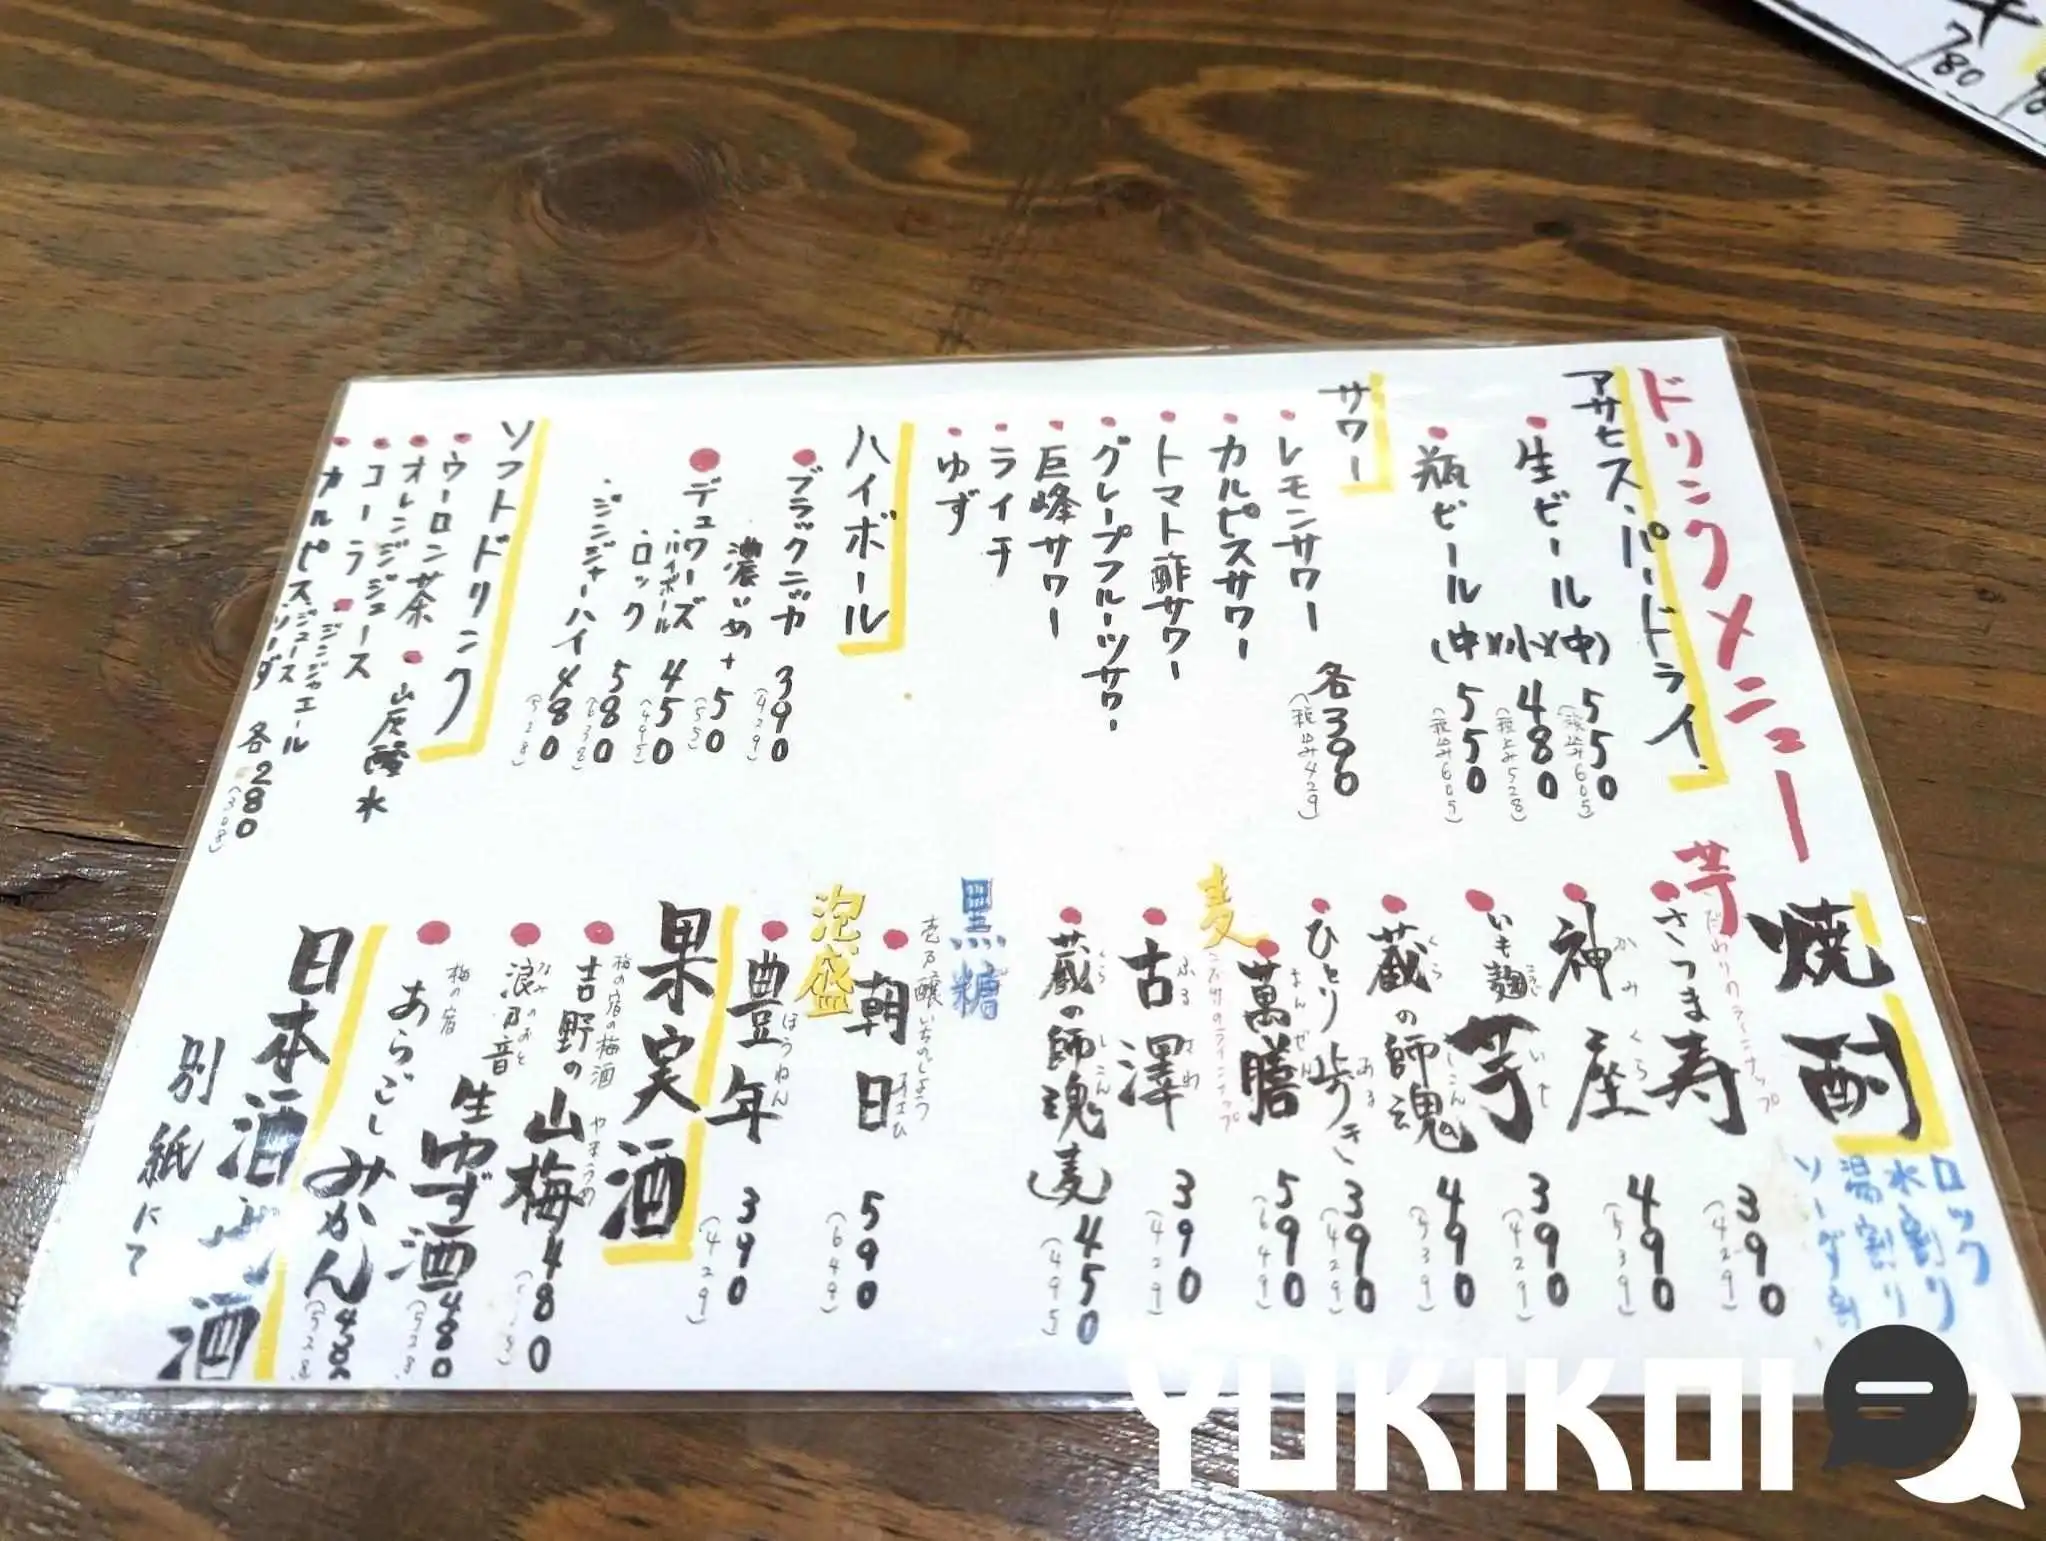 ドリンクメニュー
アサヒスーパードライ
生ビール(中) 550
(税込み605)
(小) 480
(税込み528)
瓶ビール(中) 550
(税込み605)
サワー
レモンサワー 各390
(税込み429)
カルピスサワー
トマト酢サワー
グレープフルーツサワー
巨峰サワー
ライチ
ゆず
ハイボール
ブラックニッカ 390
(429)
濃いめ+50
(55)
デュワーズ
・ハイボール 450
(495)
・ロック 580
(638)
・ジンジャーハイ 480
(528)
ソフトドリンク
ウーロン茶
山灰酸水
オレンジジュース
コーラ
ジンジャエール
カルピス・ジュース
・ソーダ
各280
(308)
焼酎
ロック
水割り
湯割り
ソーダ割
芋
だわりのラインナップ
さつま寿 390
(429)
神座 490
かみくら
(539)
いも麹芋 390
(429)
蔵の師魂 490
くらしこん
(539)
ひとり歩き 390
あるき
(429)
麦
こだわりのラインナップ
萬膳 590
まんぜん
(649)
古澤 390
ふるさわ
(429)
蔵の師魂(麦) 450
くらしこん
(495)
黒糖
壱乃醸 いちのじょう
朝日 590
あさひ
(649)
泡盛
豊年 390
ほうねん
(429)
果実酒
梅の宿の梅酒
吉野の山梅 480
浪乃音
なみのおと
生ゆず酒 480
(528)
梅の宿
あらごしみかん 480
(528)
日本酒
酒
別紙にて
780
YUKIKOI